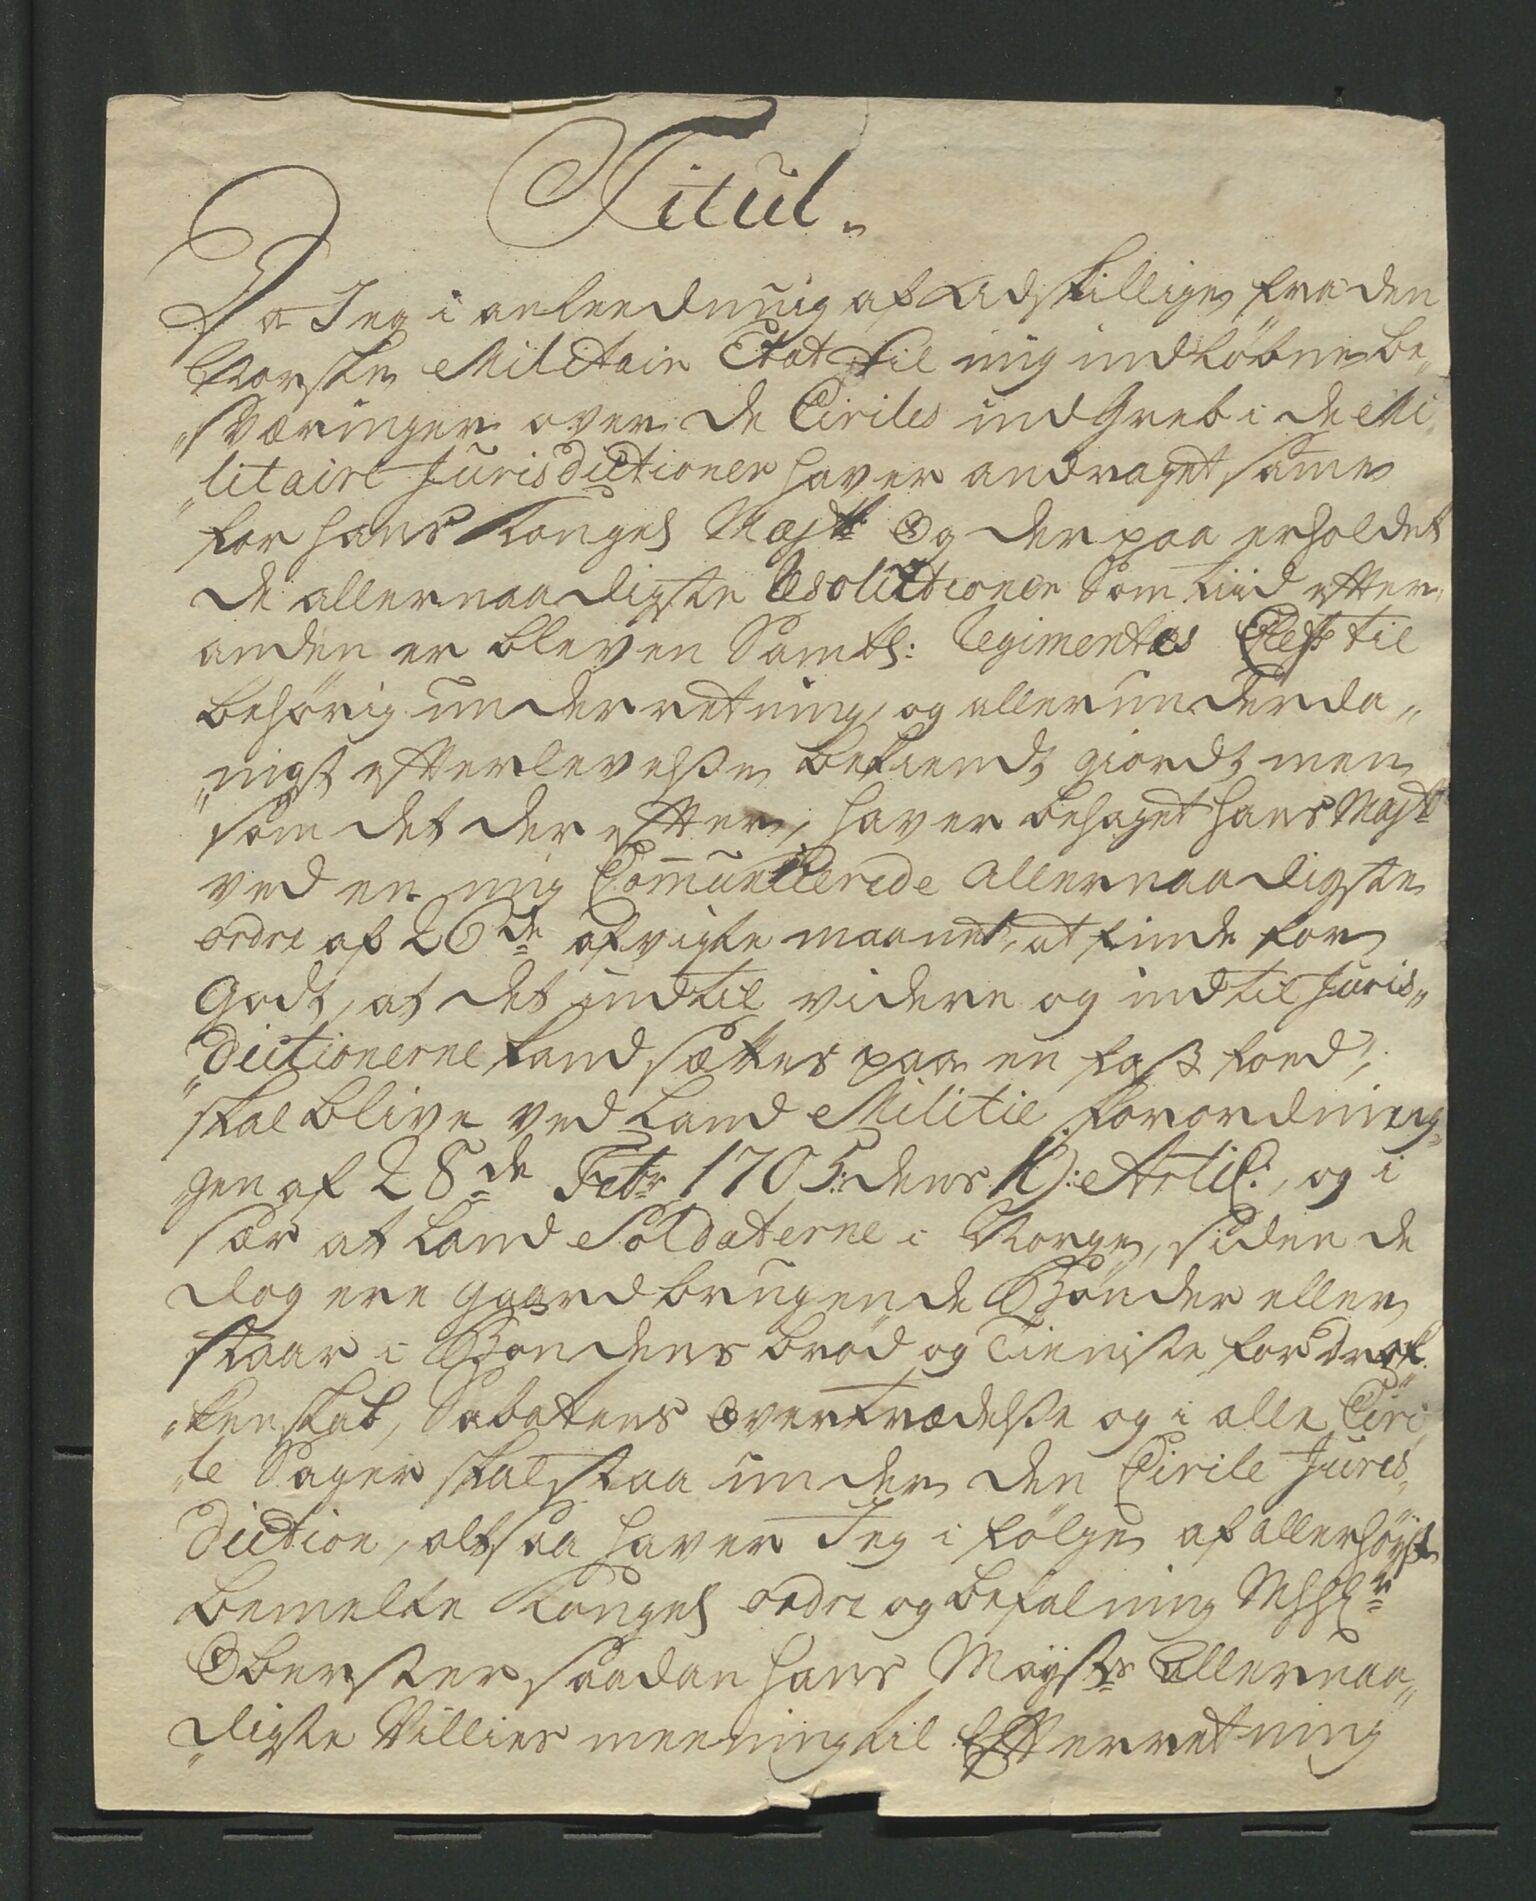 Titul.
Da Jeg i anleedning af Adskillige fra den
Norske Militair Etat til mig indløbne be„
„sværinger over de Civiles indGreb i de Mi„
„litaire Jurisdictioner haver andraget same
for hans Kongel Majtt Og der paa erholdet
de allernaadigste Resolutioner Som tiid efter
anden er bleven Samtl: Regimentes Chefs til
behørig underretning og allerunderda„
„nigst efterlevelse bekiendt giordt, men
som det der efter, haver behaget hans Majtt
ved en mig Communicerede allernaadigste
ordre af 26de afvigte maanet, at finde for
Godt, at det indtil videre og indtil Juris„
„dictionerne kand sættes paa en fast foed,
skal blive ved Land Militie forordning„
gen af 28de Febr 1705: dens 10: Artic:, og i
sær at Land Soldaterne i Norge, siden de
dog ere gaardbrugende Bønder eller
staar i Bondens brød og Tieniste for Druk„
„kenskab, Sabatens Overtrædelse og i alle Civi„
„le Sager skal staa under den Civile Juris„
diction, altsaa haver Jeg i følge af allerhøyst
bemelte Kongel ordre og befaling
Oberster saadan hans Maysts Allernaa„
„digste Villies meening til Efterretning